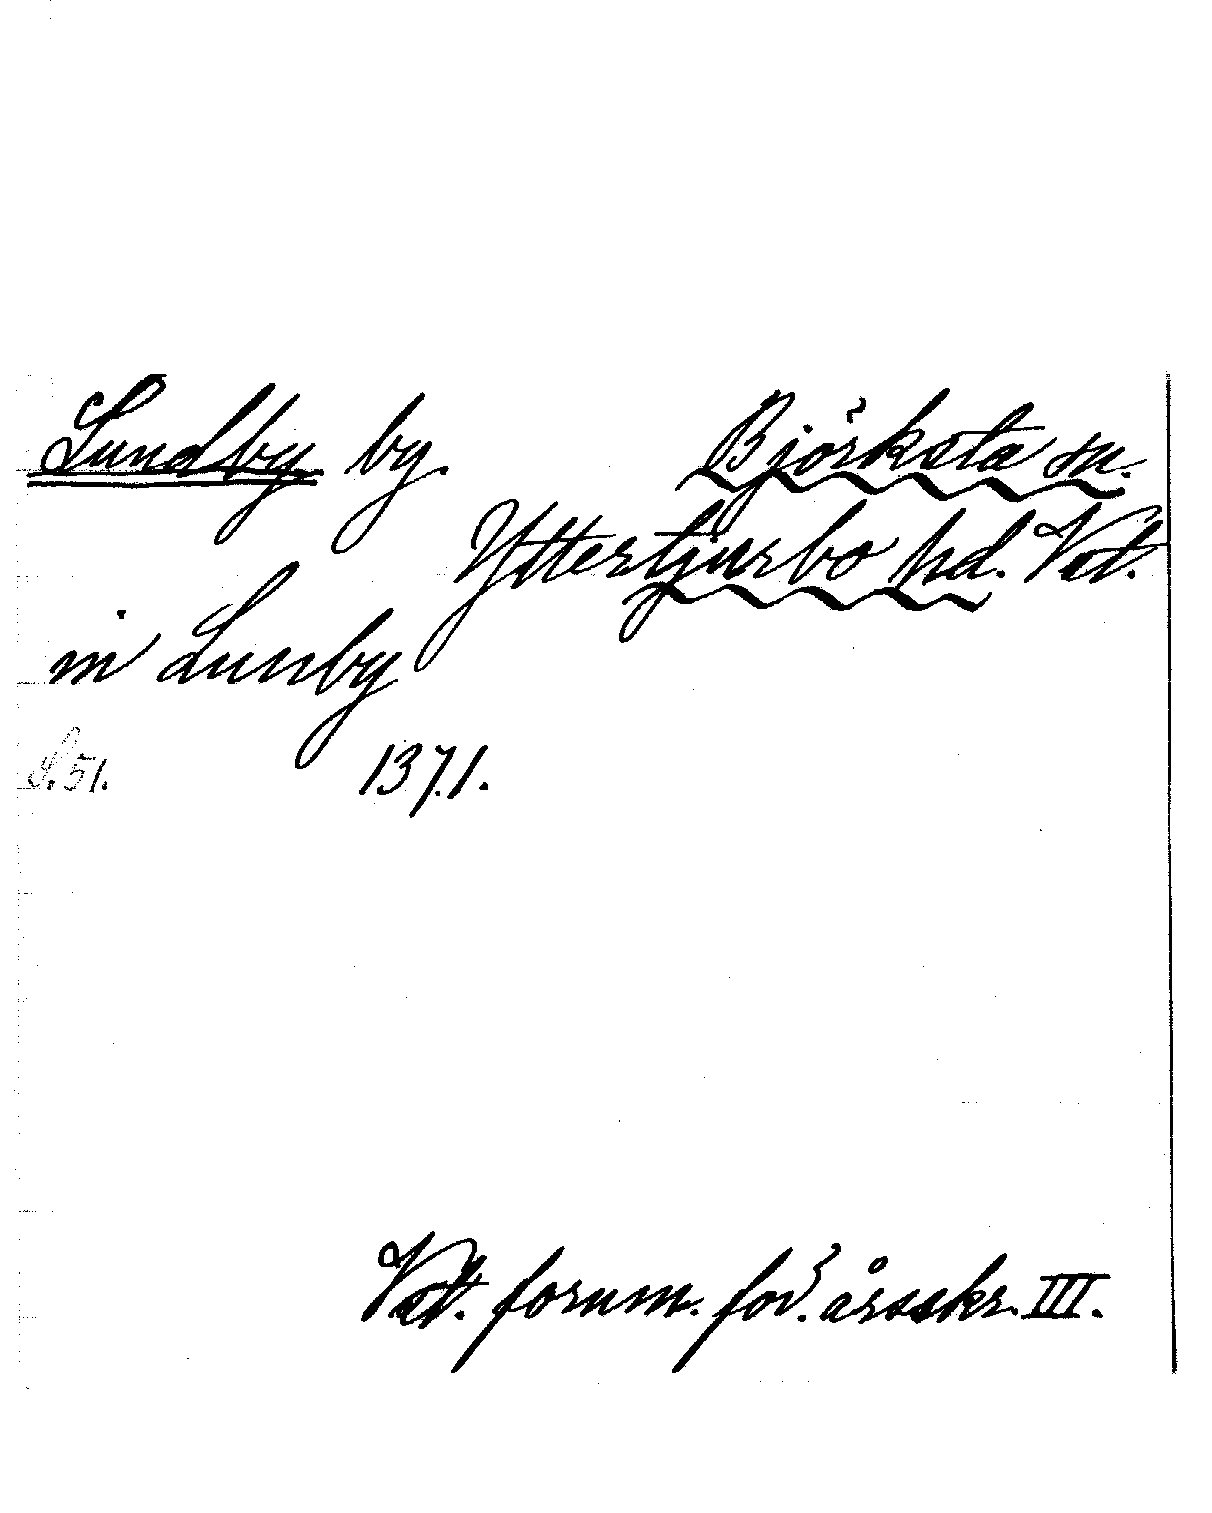 Lundby by. Björksta sn.
Yttertjurbo hd. Vst.
in Lunby
S. 51. 1371.
Vst. fornm. för. årsskr. III.